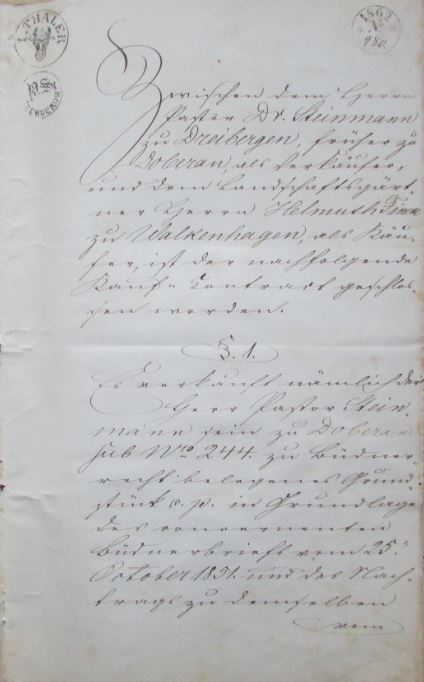 1. THALER
1862
980.
Zwischen dem Herrn
Pastor Dr. Steinmann
zu Dreibergen, früher zu
Doberan, als Verkäufer,
und dem Landschaftsgärt-
ner Herrn Helmuth Timm
zu Walkenhagen, als Käu-
fer, ist der nachfolgende
Kauf- Contract geschlos-
sen worden.
§. 1.
Es verkauft nämlich der
Herr Pastor Stein-
mann sein zu Doberan
sub No 244. zu Büdner-
recht belegenes Grund-
stück c. p. in Grundlage
des concernenten
Büdnerbriefs vom 25.
October 1831. und des Nach-
trags zu demselben
vom